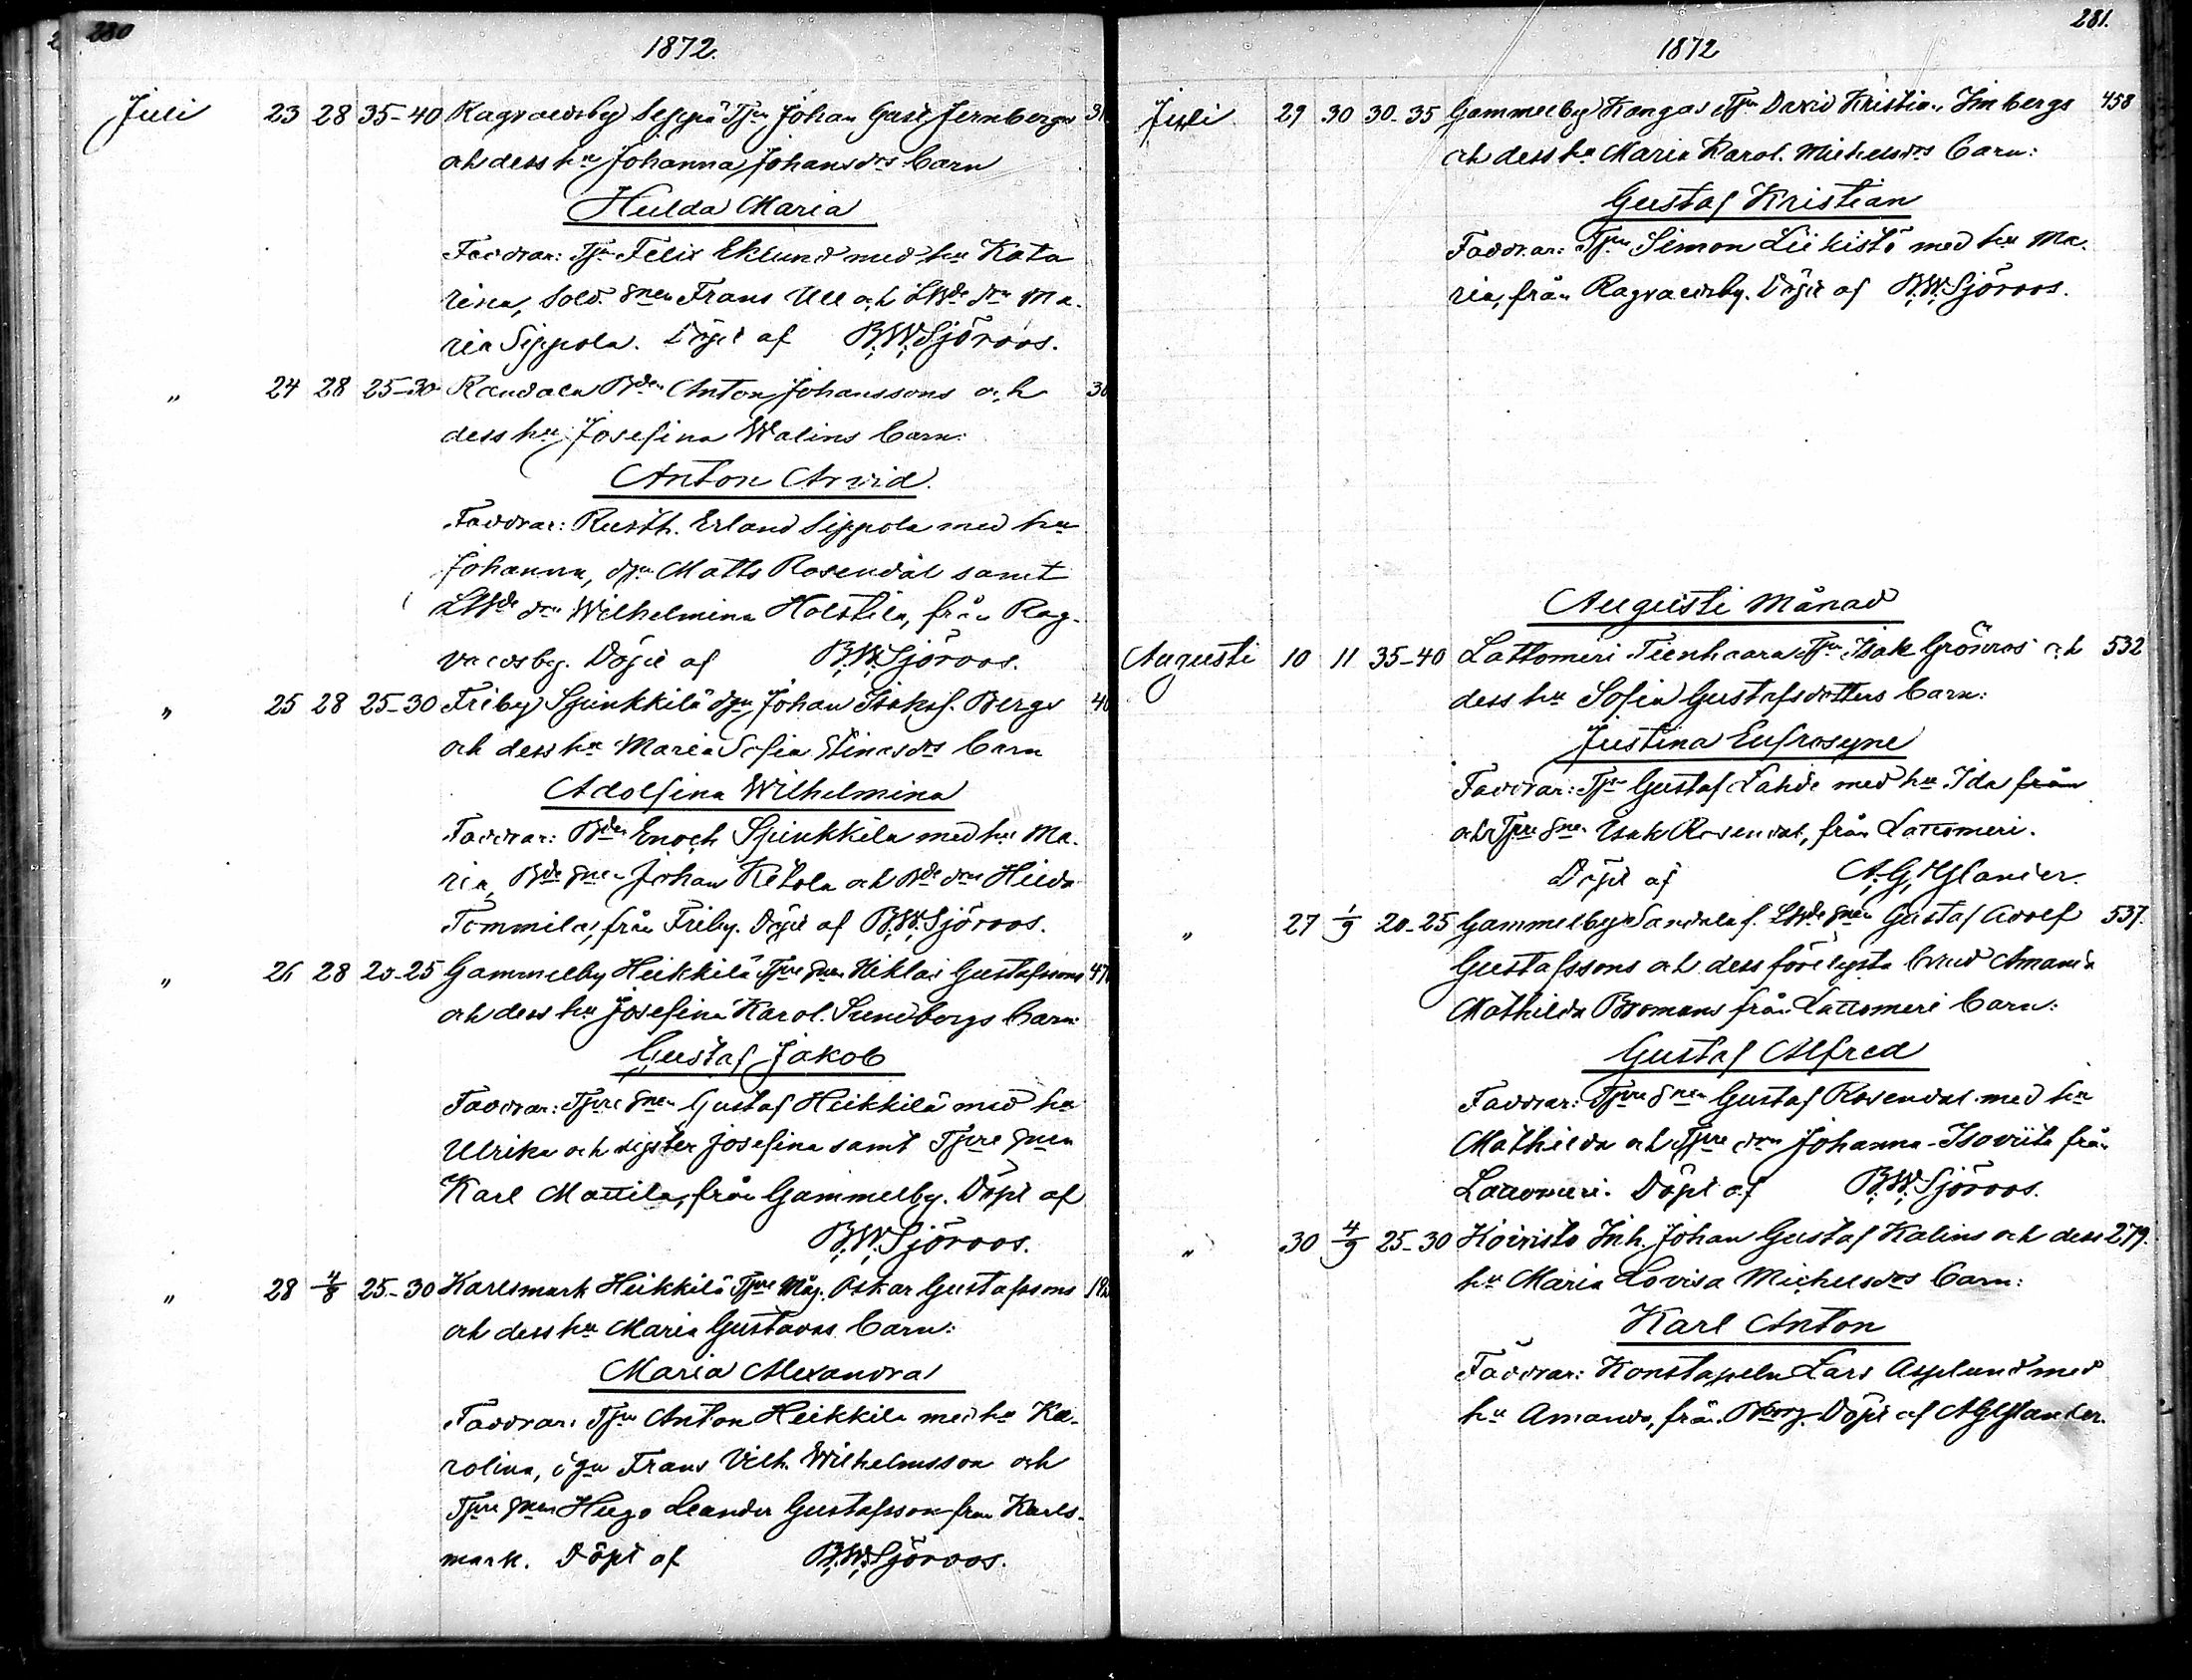 280
1872.
Juli 23 28 35-40 Ragvaldsby Seppä Tjn Johan Gust. Jernbergs 3
och dess hu Johanna Johansdrs barn
Hulda Maria
Faddrar: Tjn Felix Eklund med hu Kata
rina, Sold. gnen Frans Ull och LBde drn Ma-
ria Sippola. Döpt af B.W.Sjöroos.
" 24 28 25-30 Bdn Anton Johanssons och 30
dess hu Josefina Walins barn:
Anton Arvid.
Faddrar: Rusth. Erland Sippola med hu
Johanna, dgn Matts Rosendal samt
LBde drn Wilhelmina Holstila, från Rag-
valdsby. Döpt af B.W.Sjöroos.
" 25 28 25-30 Friby Spinkkilä dgn Johan Isaksf. Bergs 40
och dess hu Maria Sofia Stinasdrs barn
Adolfina Wilhelmina
Faddrar: Bdn Enoch Spinkkila med hu Ma-
ria, Bde gnen Johan Ketola och Bde drn Hilda
Tommila, från Friby. Döpt af B.W.Sjöroos.
" 26 28 20-25 Gammelby Heikkilä Tjre gnen Niklas Gustafssons 47
och dess hu Josefina Karol. Sundbergs barn:
Gustaf Jakob
Faddrar: Tjre gnen Gustaf Heikkilä med hu
Ulrika och syster Josefina samt Tjre gnen
Karl Mattila, från Gammelby. Döpt af
B.W.Sjöroos.
" 28 4/8 25-30 Karlsmark Heikkilä Tjre Måg. Oskar Gustafssons 19
och dess hu Maria Gustavas barn:
Maria Alexandra
Faddrar: Tjn Anton Heikkilä med hu Ka-
rolina, dgn Frans Vilh. Wilhelmsson och
Tjre gnen Hugo Leander Gustafsson från Karls-
mark. Döpt af B.W.Sjöroos.
281.
1872
Juli 29 30 30-35 Gammelby Kangas Tjn David Kristian Imbergs 458
och dess hu Maria Karol. Michelsdrs barn:
Gustaf Kristian
Faddrar: Tjn Simon Liikistö med hu Ma-
ria, från Ragvaldsby. Döpt af B.W.Sjöroos.
Augusti Månad
Augusti 10 11 35-40 Lattomeri Tienhaara Tjn Isak Grönroos och 532
dess hu Sofia Gustafsdotters barn:
Justina Eufrosyne
Faddrar: Tjn Gustaf Lahde med hu Ida från
och Tjre gnen Isak Rosendal, från Lattomeri.
Döpt af A.G.Ylander.
" 27 1/9 20-25 Gammelby Sandala f. LBde gnen Gustaf Adolf 537.
Gustafssons och dess förelysta brud Amanda
Mathilda Bromans från Lattomeri barn:
Gustaf Alfred
Faddrar: Tjre gnen Gustaf Rosendal med hu
Mathilda och Tjre drn Johanna Isoviita från
Lattomeri. Döpt af B.W.Sjöroos.
" 30 4/9 25-30 Koivisto Inh. Johan Gustaf Kalins och dess 279.
hu Maria Lovisa Michelsdrs barn:
Karl Anton
Faddrar: Konstapeln Lars Asplund med
hu Amanda, från Bborg. Döpt af AGYlander.